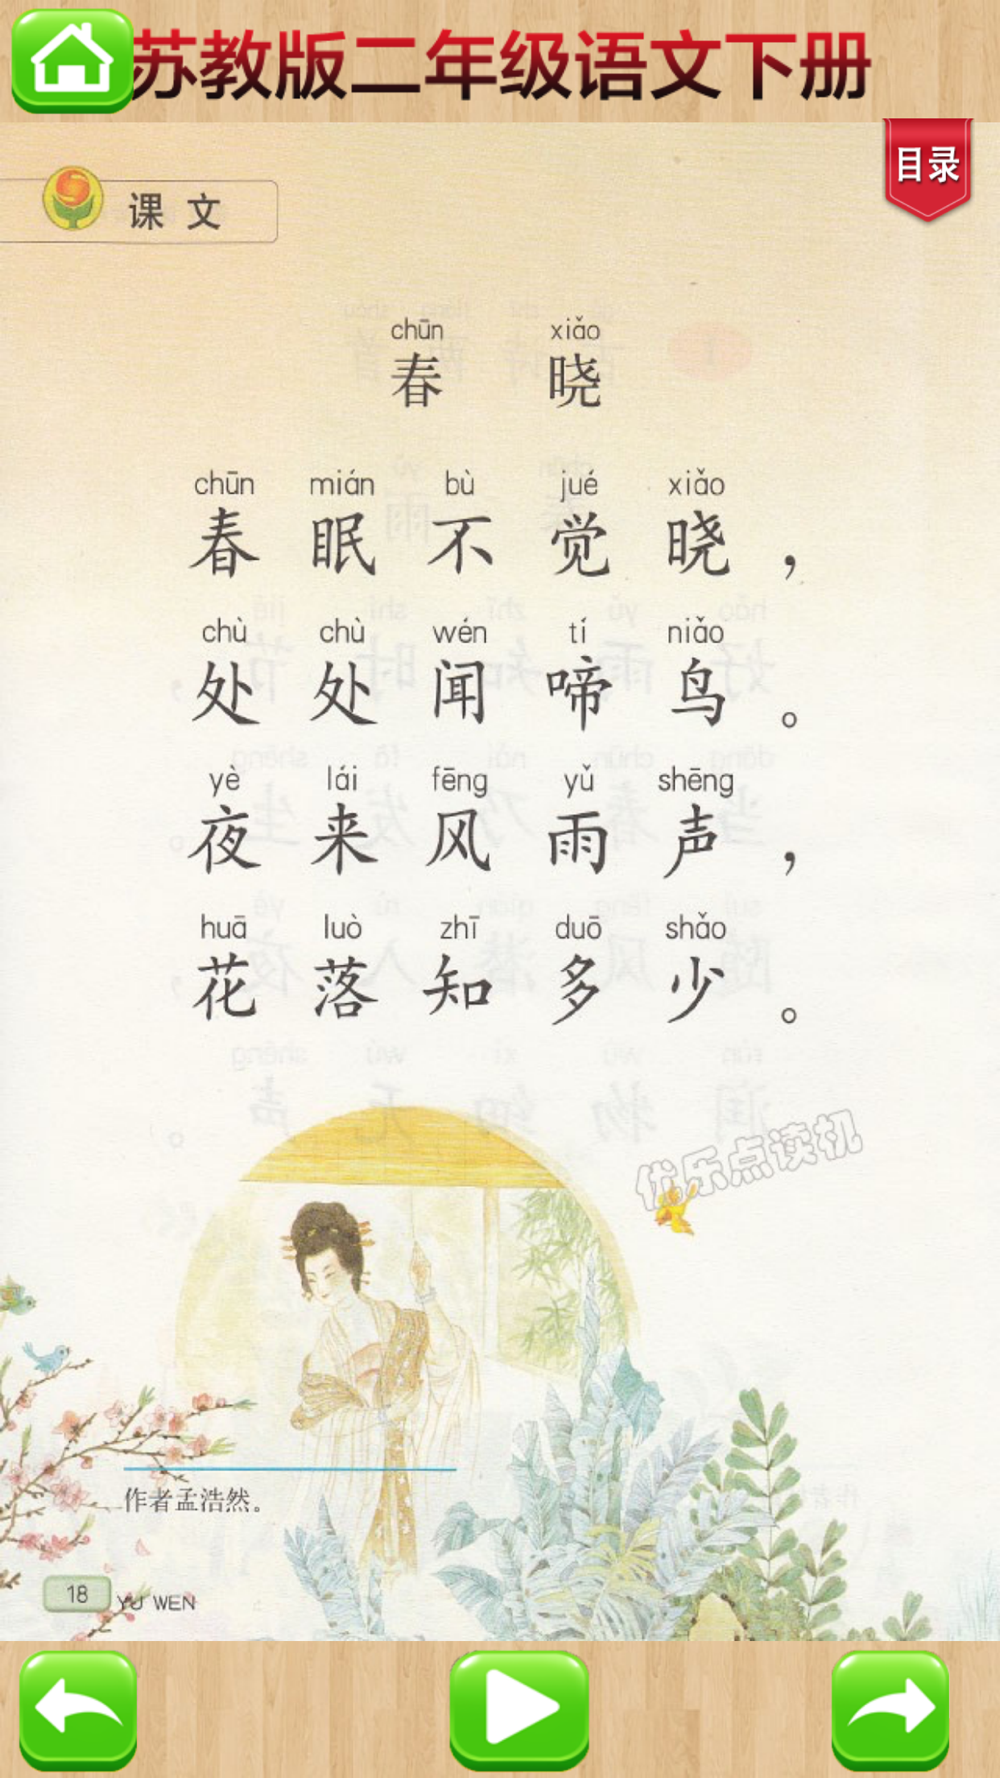 苏教版二年级语文下册
目录
课文
chūn xiǎo
春晓
chūn mián bù jué xiǎo
春眠不觉晓，
chù chù wén tí niǎo
处处闻啼鸟。
yè lái fēng yǔ shēng
夜来风雨声，
huā luò zhī duō shǎo
花落知多少。
优乐点读机
作者孟浩然。
18 YU WEN